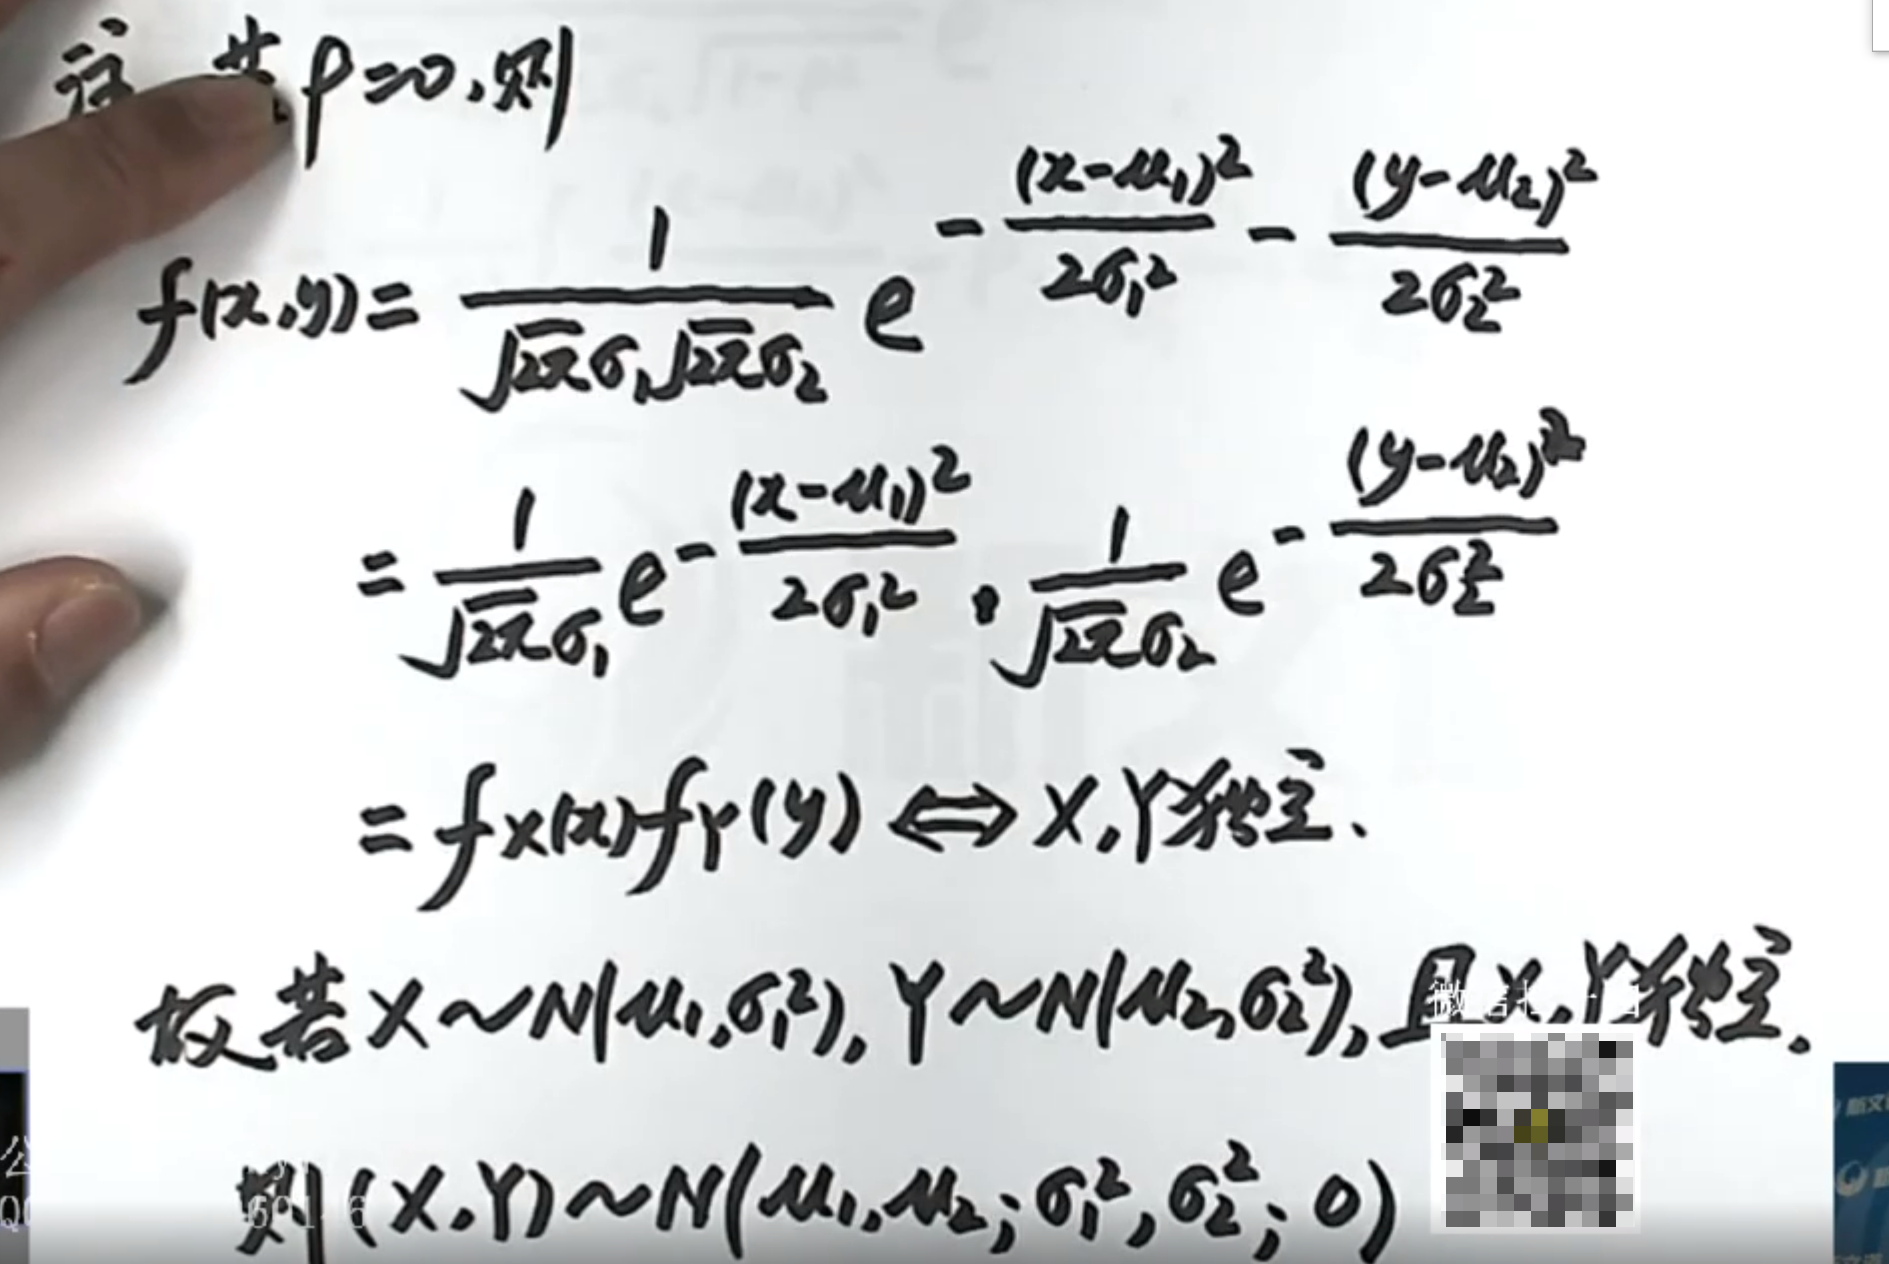 注 若ρ=0,则
f(x,y)= \frac{1}{\sqrt{2π}σ_1\sqrt{2π}σ_2} e^{-\frac{(x-μ_1)^2}{2σ_1^2}-\frac{(y-μ_2)^2}{2σ_2^2}}
= \frac{1}{\sqrt{2π}σ_1} e^{-\frac{(x-μ_1)^2}{2σ_1^2}} · \frac{1}{\sqrt{2π}σ_2} e^{-\frac{(y-μ_2)^2}{2σ_2^2}}
= f_X(x)f_Y(y) ⇔ X,Y独立.
故若X~N(μ_1,σ_1^2), Y~N(μ_2,σ_2^2), 且X,Y独立.
微信扫一扫
则(X,Y)~N(μ_1,μ_2;σ_1^2,σ_2^2;0)